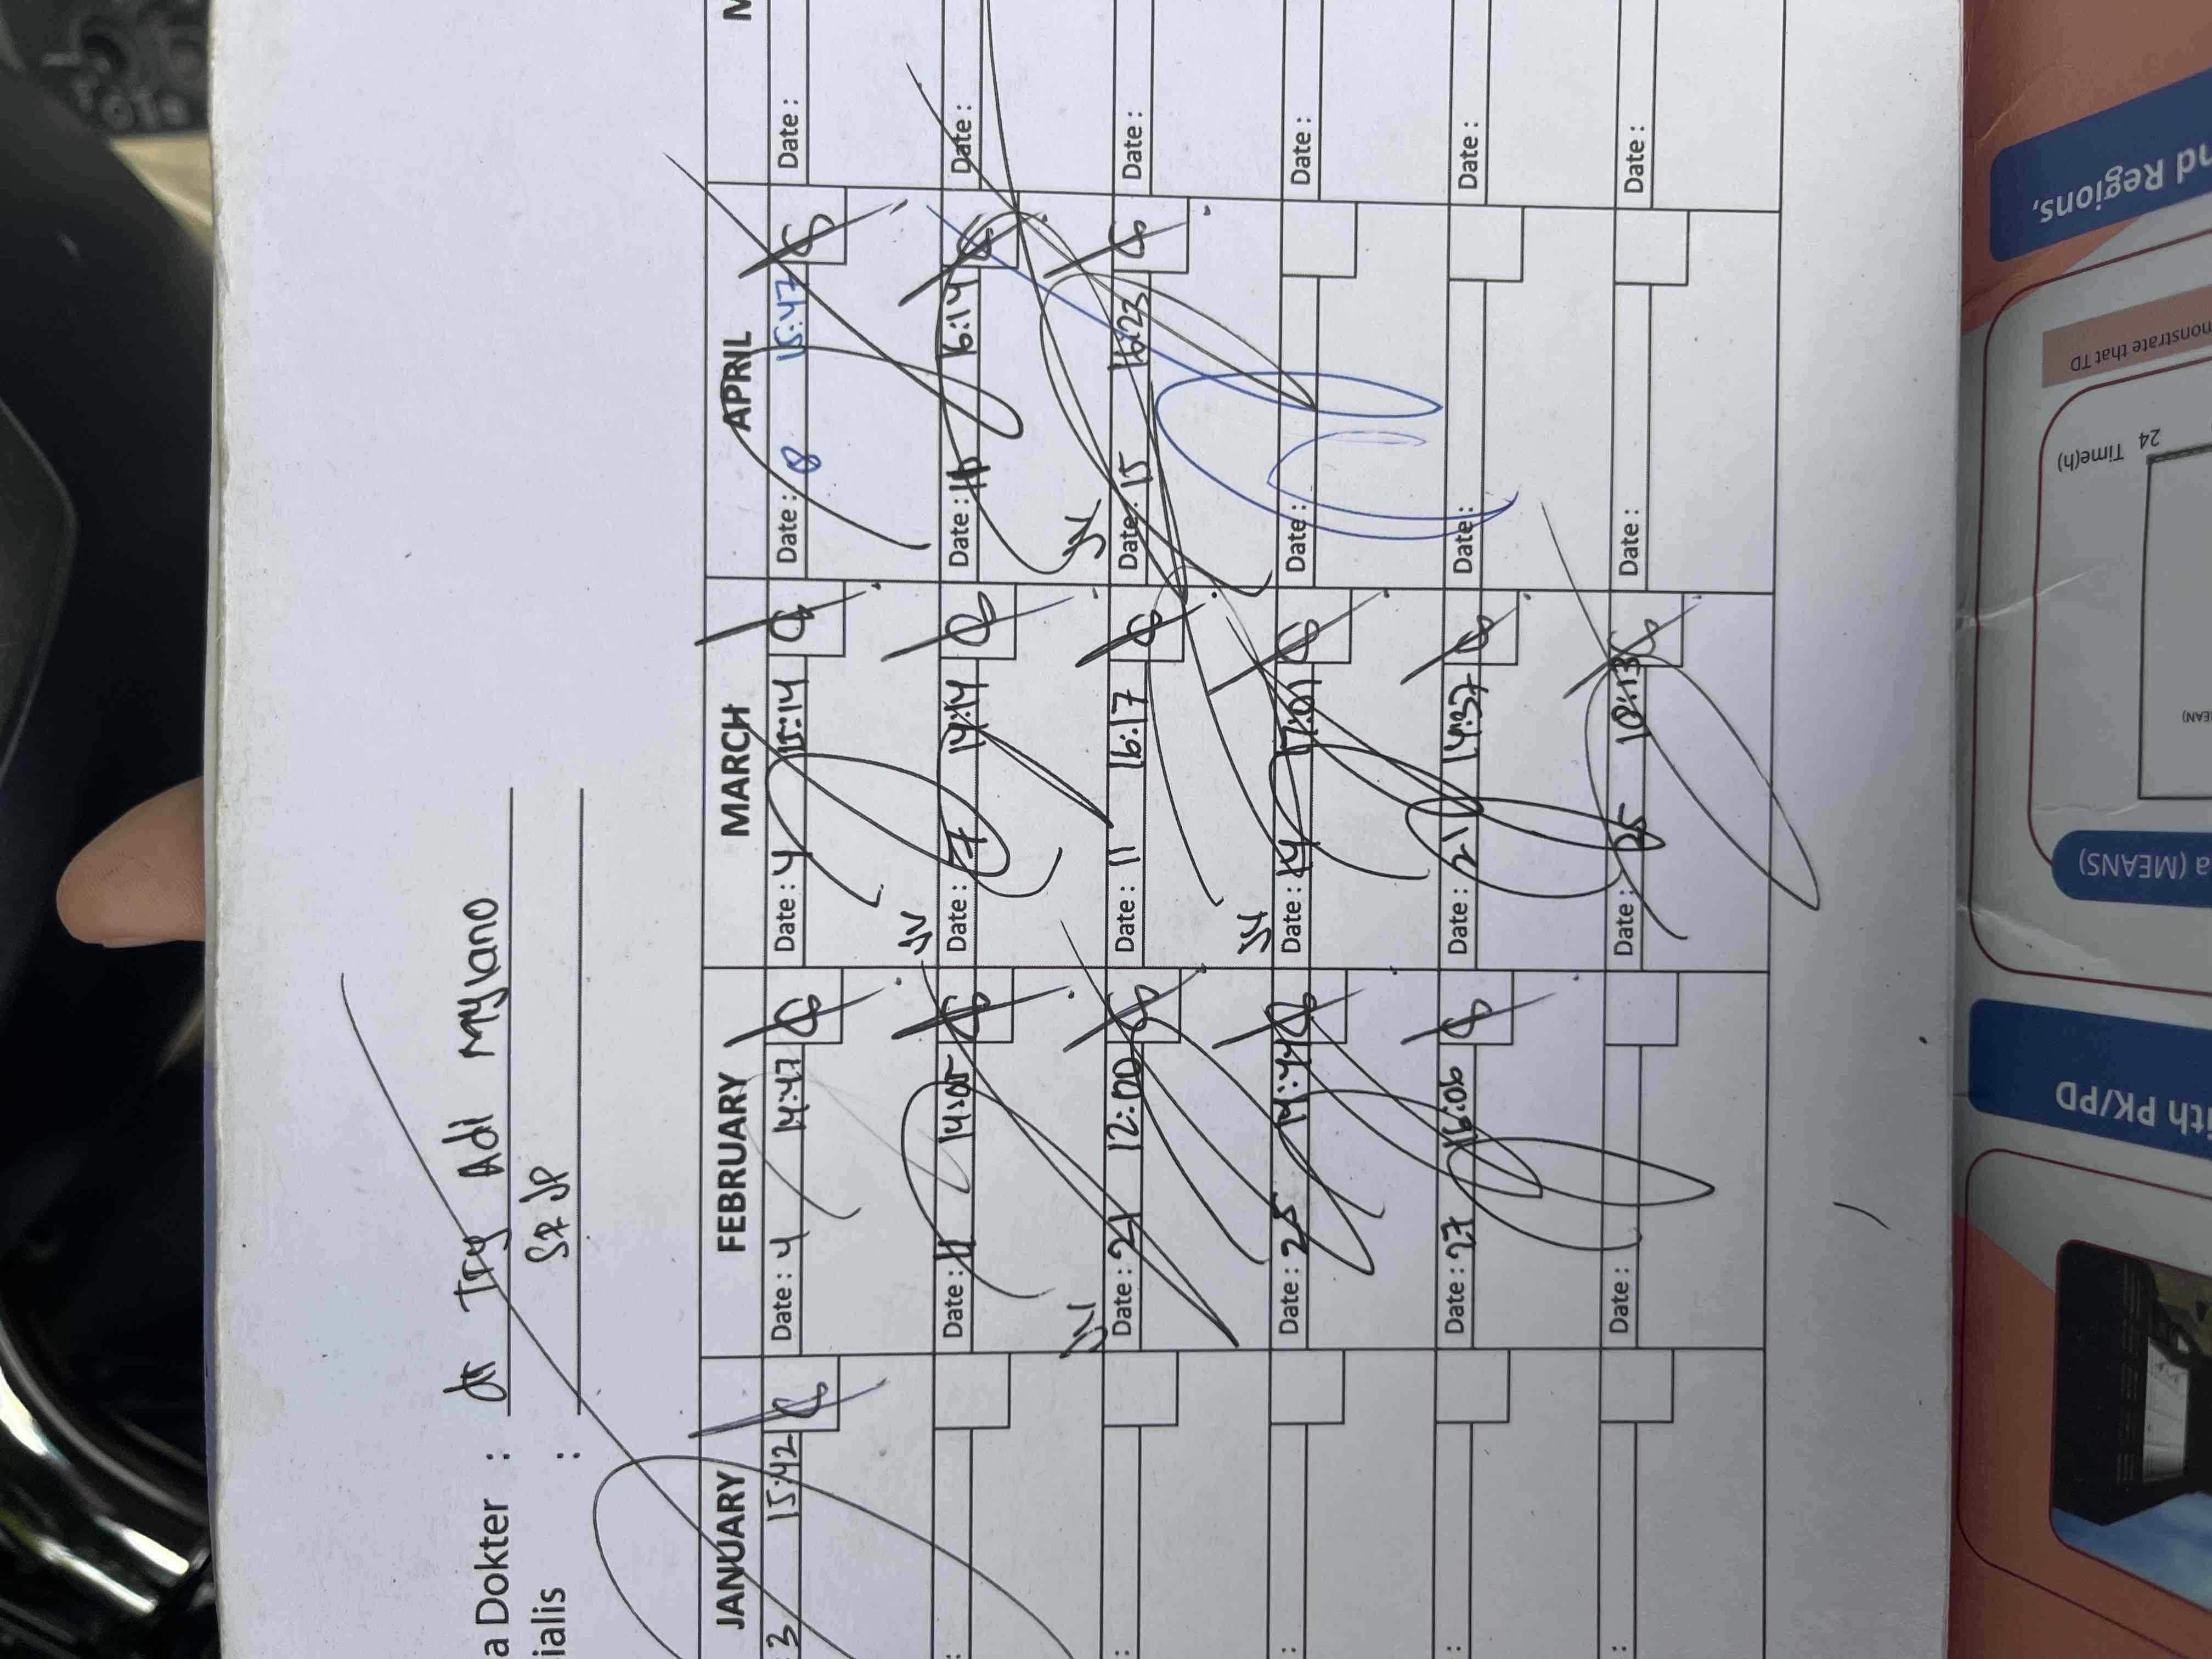 a Dokter : dr Try Adi Mylano
ialis : Sp JP
JANUARY FEBRUARY MARCH APRNL M
3 15:42 Date : 4 14:47 Date : 4 15:14 Date : 8 15:47 Date :
: Date : 11 14:05 Date : 7 14:14 Date : 11 16:14 Date :
: Date : 21 12:00 Date : 11 16:17 Date : 15 16:23 Date :
: Date : 25 14:44 Date : 14 17:01 Date : Date :
: Date : 27 16:06 Date : 21 14:37 Date : Date :
: Date : Date : 25 Date : Date :
nd Regions,
monstrate that TD
24 Time(h)
EAN)
a (MEANS)
ith PK/PD